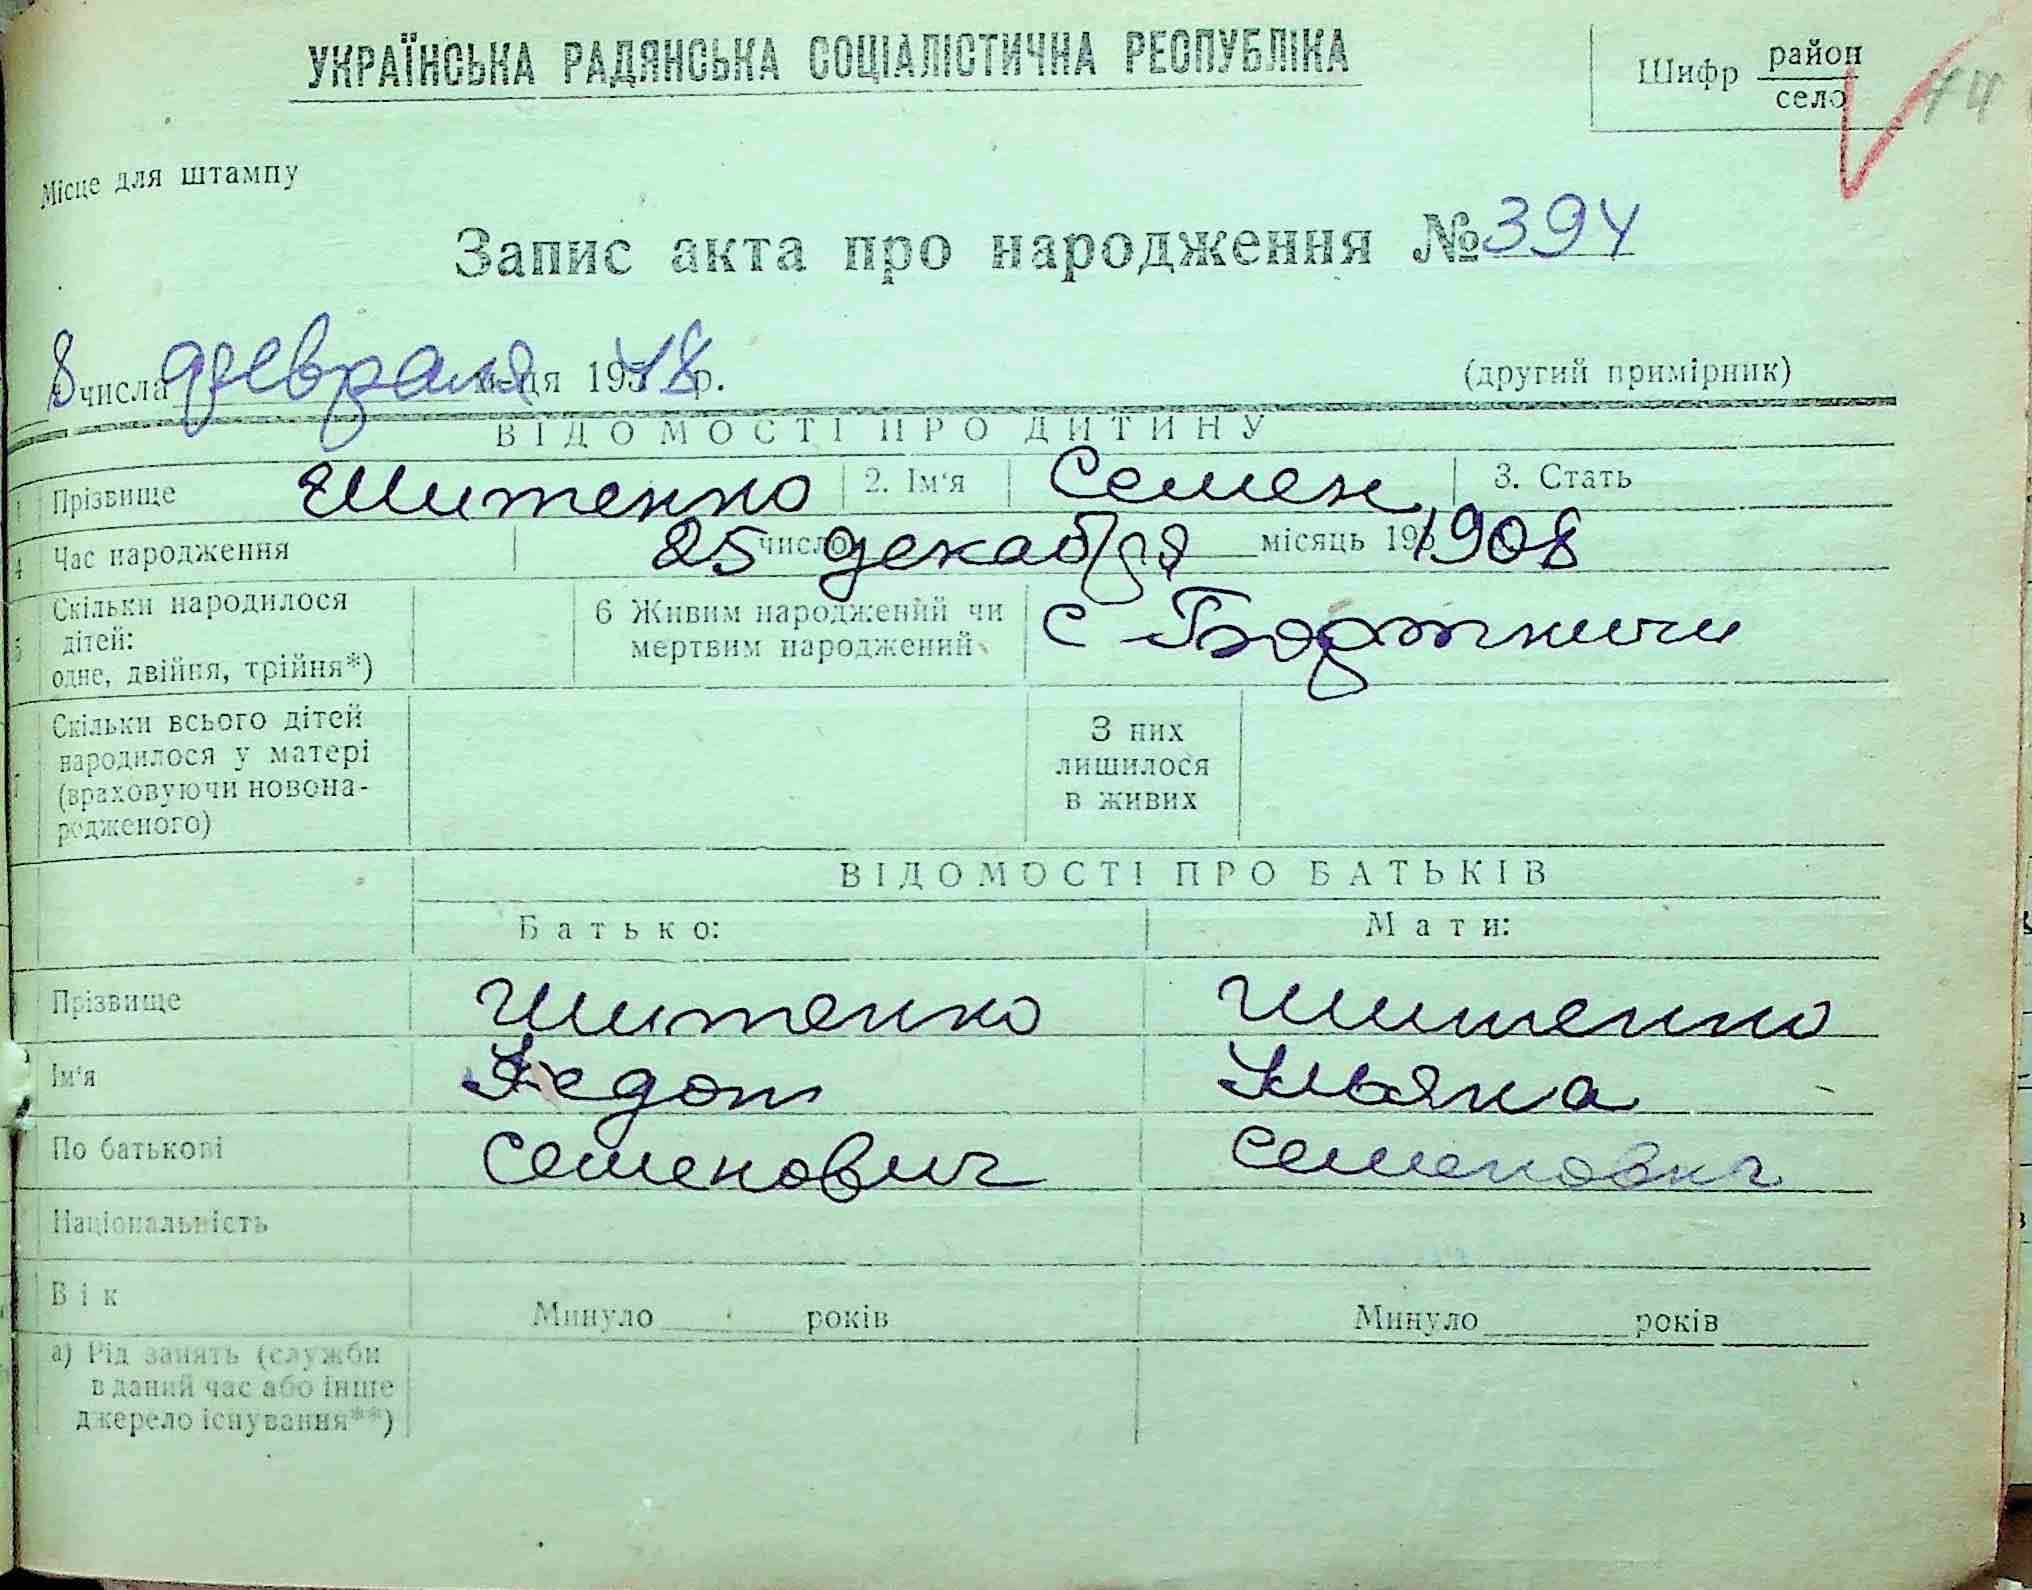 УКРАЇНСЬКА РАДЯНСЬКА СОЦІАЛІСТИЧНА РЕСПУБЛІКА
Шифр район
село
44
Місце для штампу
Запис акта про народження № 394
8 числа февраля місяця 1948 р. (другий примірник)
ВІДОМОСТІ ПРО ДИТИНУ
1 Прізвище Шитенко 2. Ім'я Семен 3. Стать
4 Час народження 25 число декабря місяць 195 1908
5 Скільки народилося дітей: одне, двійня, трійня*) 6 Живим народжений чи мертвим народжений с
7 Скільки всього дітей народилося у матері (враховуючи новонародженого) З них лишилося в живих
ВІДОМОСТІ ПРО БАТЬКІВ
Батько: Мати:
Прізвище Шитенко Шитенко
Ім'я Федот Ульяна
По батькові Семенович Семеновна
Національність
Вік Минуло років Минуло років
а) Рід занять (служби в даний час або інше джерело існування**)